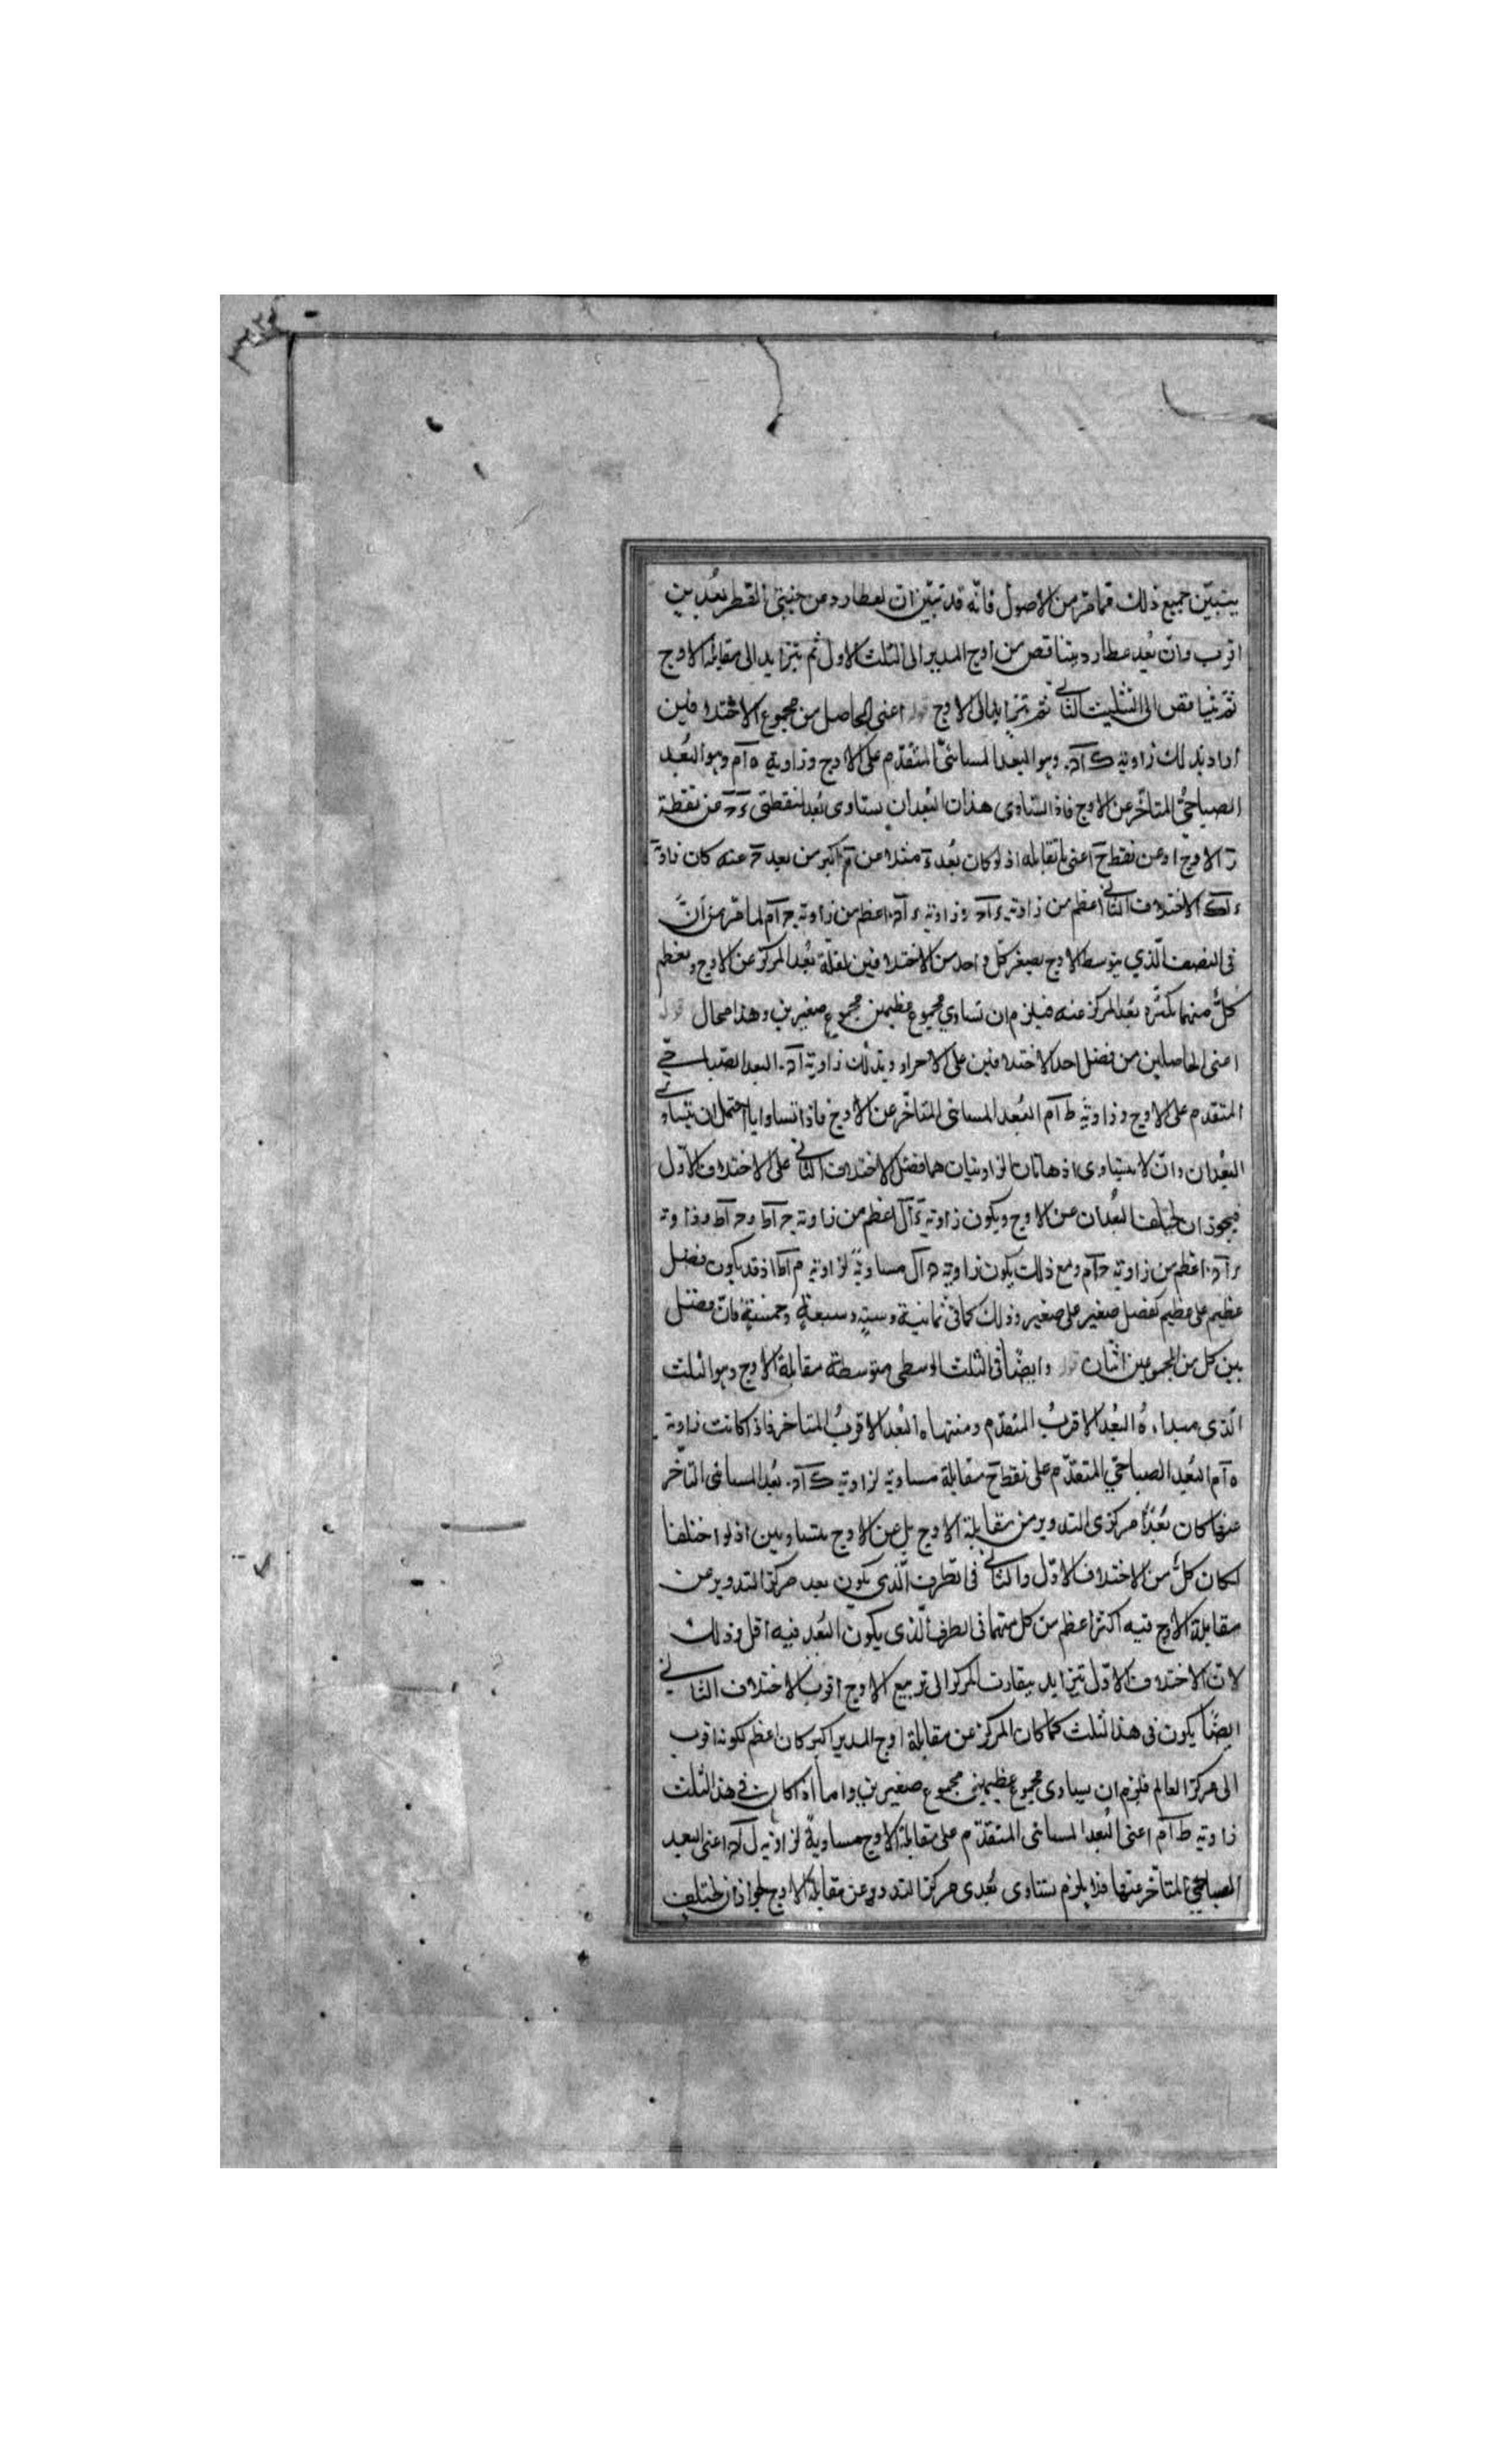 يتبيّن جميع ذلك مما مرّ من الاصول فانّه قد تبيّن انّ لعطارد عن جنبتى القطر بُعدين
اقرب وانّ بُعد عطارد يتناقص من اوج المدير الى الثلث الاول ثم يتزايد الى مقابلة الاوج
ثمّ يتناقص الى التثليث الثانى ثم يتزايد الى الاوج قوله اعنى الحاصل من مجموع الاختلافين
اراد بذلك زاوية ك آد وهو البعد المسائىّ المتقدّم على الاوج وزاوية ه آم وهو البُعد
الصباحىُّ المتاخّر عن الاوج فاذا تساوى هذان البُعدان يتساوى بُعدا نقطتى ء ح عن نقطة
ز الاوج او عن نقطة ح اعنى ما تقابله اذ لو كان بُعد ء مثلا عن ز اكبر من بعد ح عنه كان زاوية
ء آك الاختلاف الثانى اعظم من زاوية وزاوية ء آد اعظم من زاوية ح آم لما مرّ من انّ
فى النصف الّذي يتوسطه الاوج يصغر كلّ واحد من الاختلافين لقلّة بُعد المركز عن الاوج ويعظم
كلٌّ منهما بكثرة بُعد المركز عنه فيلزم ان تساوي مجموع عظيمين مجموع صغيرين وهذا محال قوله
اعنى الحاصلين من فضل احد الاختلافين على الاخر اراد بذلك زاوية البعد الصّباحىّ
المتقدم على الاوج وزاوية ط آم البُعد المسائى المتاخّر عن الاوج فاذا تساوايا احتمل ان يتساوى
البُعدان وان لا يتساوى اذ هاتان الزاويتان هما فضل الاختلاف الثانى على الاختلاف الاوّل
فيجوز ان يختلف البُعدان عن الاوج ويكون زاوية ء آل اعظم من زاوية ح آط وزاوية
ء آد اعظم من زاوية ح آم ومع ذلك يكون زاوية د آل مساويةً لزاوية م آط اذ قد يكون فضل
عظيم على عظيم كفضل صغير على صغير وذلك كما فى ثمانية وستة وسبعة وخمسة فانّ فضل
بين كل من المجموعين اثنان قوله وايضًا فى الثلث الاوسطى متوسطة مقابلة الاوج وهو الثلث
الّذى مبداءه البُعد الاقربُ المتقدّم ومنتهاه البُعد الاقربُ المتاخر فاذا كانت زاوية
ه آم البُعد الصباحىّ المتقدّم على نقطة ح مقابلة مساوية لزاوية ك آد بُعد المسائى المتأخّر
عنها كان بُعدا مركزى التدوير من مقابلة الاوج بل عن الاوج متساويين اذ لو اختلفا
لكان كلٌّ من الاختلاف الاوّل والثانى فى الطرف الّذى يكون بعد مركز التدوير عن
مقابلة الاوج فيه اكثر اعظم من كل منهما فى الطرف الّذى يكون البُعد فيه اقل وذلك
لانّ الاختلاف الاوّل يتزايد بمقارنة المركز الى تربيع الاوج اقرب الاختلاف الثانى
ايضًا يكون فى هذا الثلث كلما كان المركز عن مقابلة اوج المدير اكبر كان اعظم لكونه اقرب
الى مركز العالم فلزم ان يساوى مجموع عظيمين مجموع صغيرين واما اذا كان فى هذا الثلث
زاوية ط آم اعنى البُعد المسائى المتقدّم على مقابلة الاوج مساويةً لزاوية ل آد اعنى البعد
الصباحىّ المتأخّر عنها فذا يلزم تساوى بُعدى مركز التدوير عن مقابلة الاوج لجواز ان يختلف